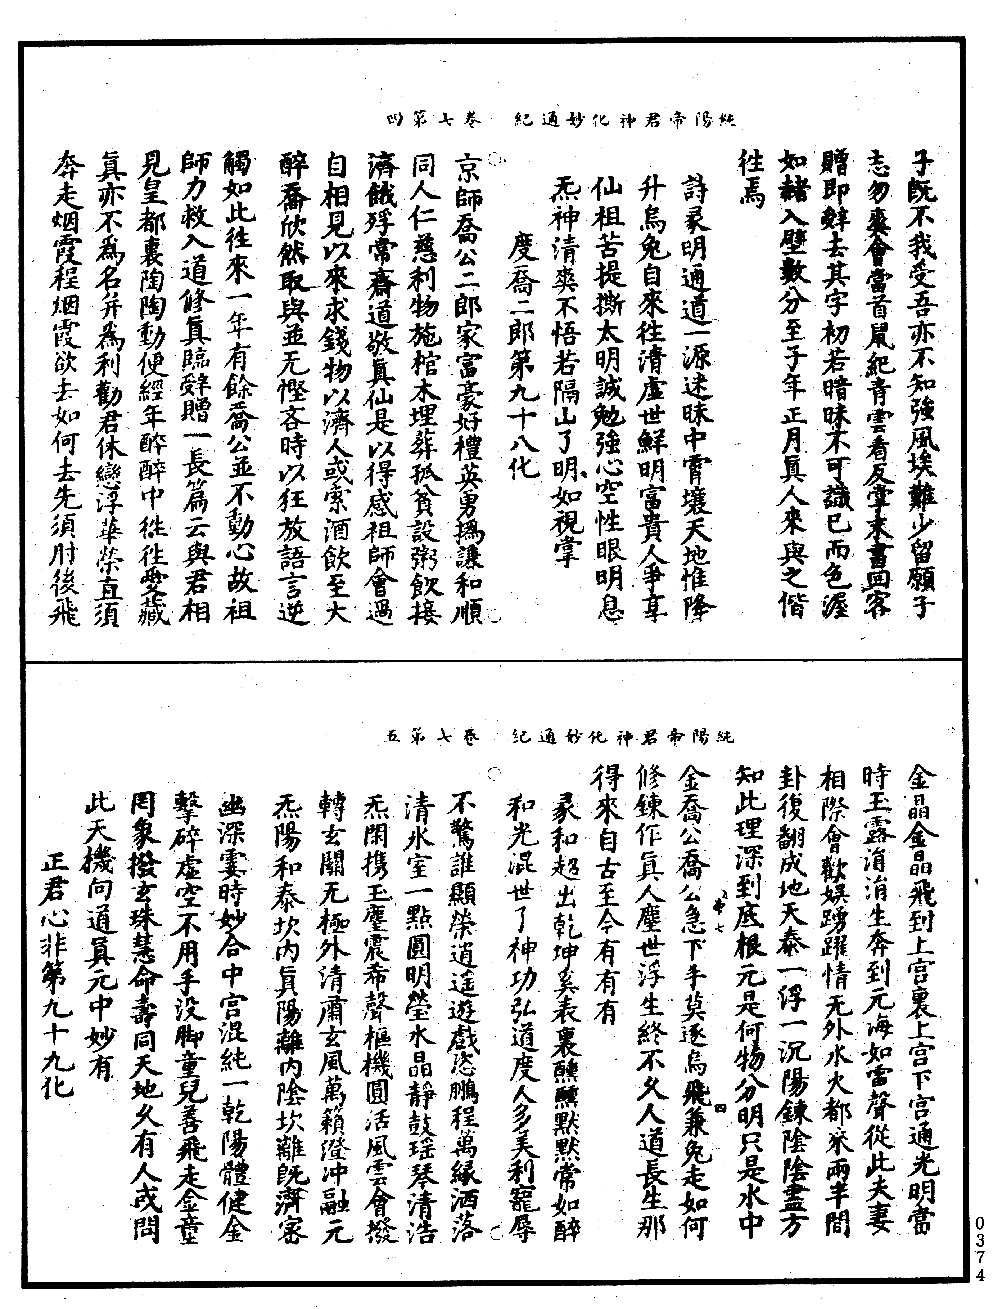 純陽帝君神化妙通紀　卷七第四
子既不我受吾亦不知強風埃難少留願子
志勿衰會當首鼠紀青雲看反掌末書回客
贈即辭去其字初若暗昧不可識已而色渥
如赭入壁數分至子年正月真人來與之偕
徃焉
詩彖明通道一源迷昧中霄壤天地惟降
升烏兔自來往清虛世鮮明富貴人爭享
仙祖苦提撕太明誠勉強心空性眼明息
炁神清爽不悟若隔山了明如視掌
度喬二郎第九十八化
京師喬公二郎家富豪好禮英勇撝謙和順
同人仁慈利物施棺木埋葬孤貧設粥飲接
濟餓殍常齋道敬真仙是以得感祖師會過
自相見以來求錢物以濟人或索酒飲至大
醉喬欣然取與並无慳吝時以狂放語言逆
觸如此往來一年有餘喬公並不動心故祖
師力救入道修真臨辭贈一長篇云與君相
見皇都裏陶陶動便經年醉醉中徃徃愛藏
真亦不為名并為利勸君休戀浮華榮直須
奔走烟霞程烟霞欲去如何去先須肘後飛
純陽帝君神化妙通紀　卷七第五
金晶金晶飛到上宮裏上宮下宮通光明當
時玉露涓涓生奔到元海如雷聲從此夫妻
相際會歡娛踴躍情无外水火都來兩半間
卦復翻成地天泰一浮一沉陽鍊陰陰盡方
知此理深到底根元是何物分明只是水中
金喬公喬公急下手莫逐烏飛兼兔走如何
修鍊作真人塵世浮生終不久人道長生那
得來自古至今有有有
彖和超出乾坤奚表裏醺醺默默常如醉
和光混世了神功弘道度人多美利寵辱
不驚誰顯榮逍遥遊戲恣鵬程萬緣洒落
清水室一點圓明瑩水晶靜鼓瑶琴清浩
炁閑携玉麈震希聲樞機圓活風雲會撥
轉玄關无極外清肅玄風萬籟澄冲融元
炁陽和泰坎内真陽離内陰坎離既濟深
幽深霎時妙合中宮混純一乾陽體健金
擊碎虛空不用手没脚童兒善飛走金童
罔象撥玄珠慧命壽同天地久有人或問
此天機向道真元中妙有
正君心非第九十九化
0374